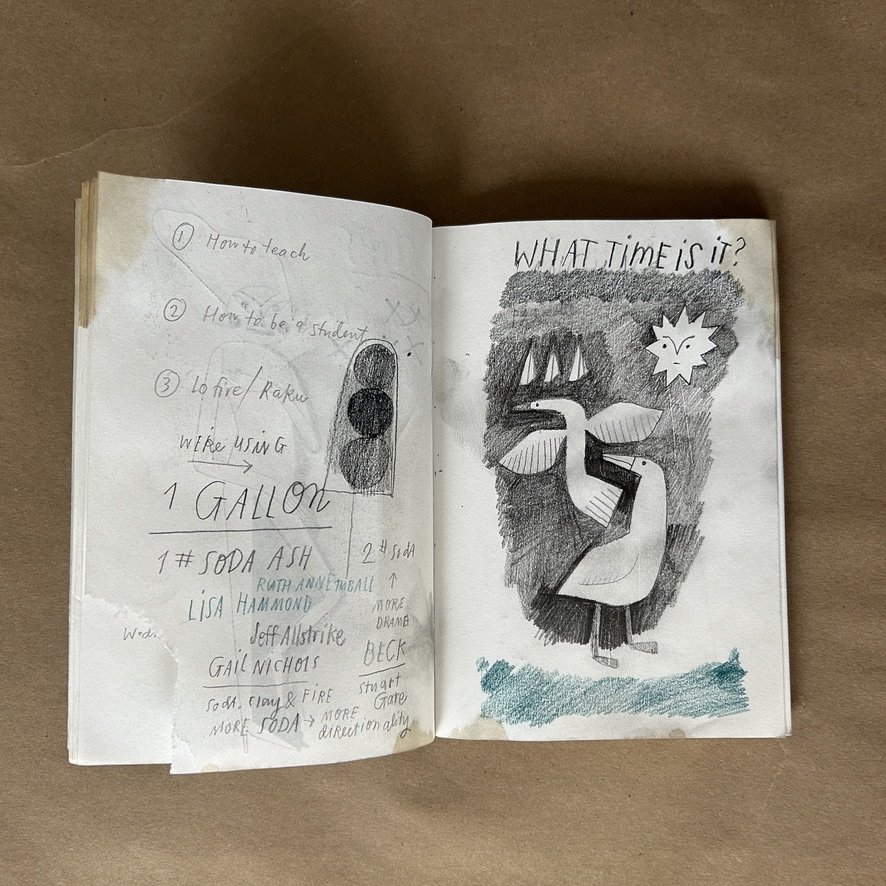 ① How to teach
② How to be a student
③ Lo fire / Raku
WE'RE USING
1 GALLON
1 # SODA ASH
2 # SODA
↑
MORE
DRAMA
RUTH ANNE TUDBALL
LISA HAMMOND
Jeff Allstrike
GAIL NICHOLS
BECK
Soda, Clay & FIRE
Stuart
Gare
MORE SODA → MORE
directionality
WHAT TIME IS IT?